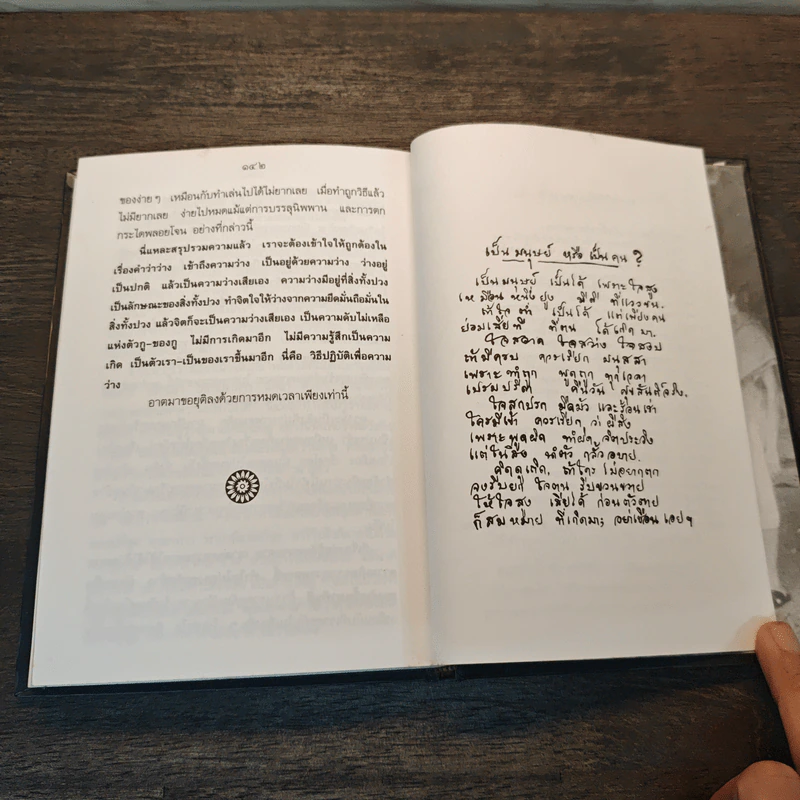 ๑๔๒
ของง่ายๆ เหมือนกับทำเล่นไปได้ไม่ยากเลย เมื่อทำถูกวิธีแล้ว
ไม่มียากเลย ง่ายไปหมดแม้แต่การบรรลุนิพพาน และการตก
กระไดพลอยโจน อย่างที่กล่าวนี้
นี่แหละสรุปรวมความแล้ว เราจะต้องเข้าใจให้ถูกต้องใน
เรื่องคำว่าว่าง เข้าถึงความว่าง เป็นอยู่ด้วยความว่าง ว่างอยู่
เป็นปกติ แล้วเป็นความว่างเสียเอง ความว่างมีอยู่ที่สิ่งทั้งปวง
เป็นลักษณะของสิ่งทั้งปวง ทำจิตใจให้ว่างจากความยึดมั่นถือมั่นใน
สิ่งทั้งปวง แล้วจิตก็จะเป็นความว่างเสียเอง เป็นความดับไม่เหลือ
แห่งตัวกู-ของกู ไม่มีการเกิดมาอีก ไม่มีความรู้สึกเป็นความ
เกิด เป็นตัวเรา-เป็นของเราขึ้นมาอีก นี่คือ วิธีปฏิบัติเพื่อความ
ว่าง
อาตมาขอยุติลงด้วยการหมดเวลาเพียงเท่านี้
เป็นมนุษย์ หรือ เป็นคน?
เป็นมนุษย์ เป็นได้ เพราะใจสูง
เหมือนหนึ่งยูง มีดี ที่แววขน.
ถ้าใจต่ำ เป็นได้ แต่เพียงคน
ย่อมเสียที ที่ตน ได้เกิดมา.
ใจสอาด ใจสว่าง ใจสงบ
ถ้ามีครบ ควรเรียก มนุสสา
เพราะทำถูก พูดถูก ทุกเวลา
เปรมปรีดา คืนวัน ศุขสันติ์จริง.
ใจสกปรก มืดมัว และร้อนเร่า
ใครมีเข้า ควรเรียก ว่าผีสิง
เพราะพูดผิด ทำผิด จิตประวิง
แต่ในสิ่ง นำตัว กลั้วอบาย.
คิดดูเถิด, ถ้าใคร ไม่อยากตก
จงรีบยก ใจตน รีบขวนขวาย
ให้ใจสูง เสียได้ ก่อนตัวตาย
ก็สมหมาย ที่เกิดมา; อย่าเชือนเอยฯ